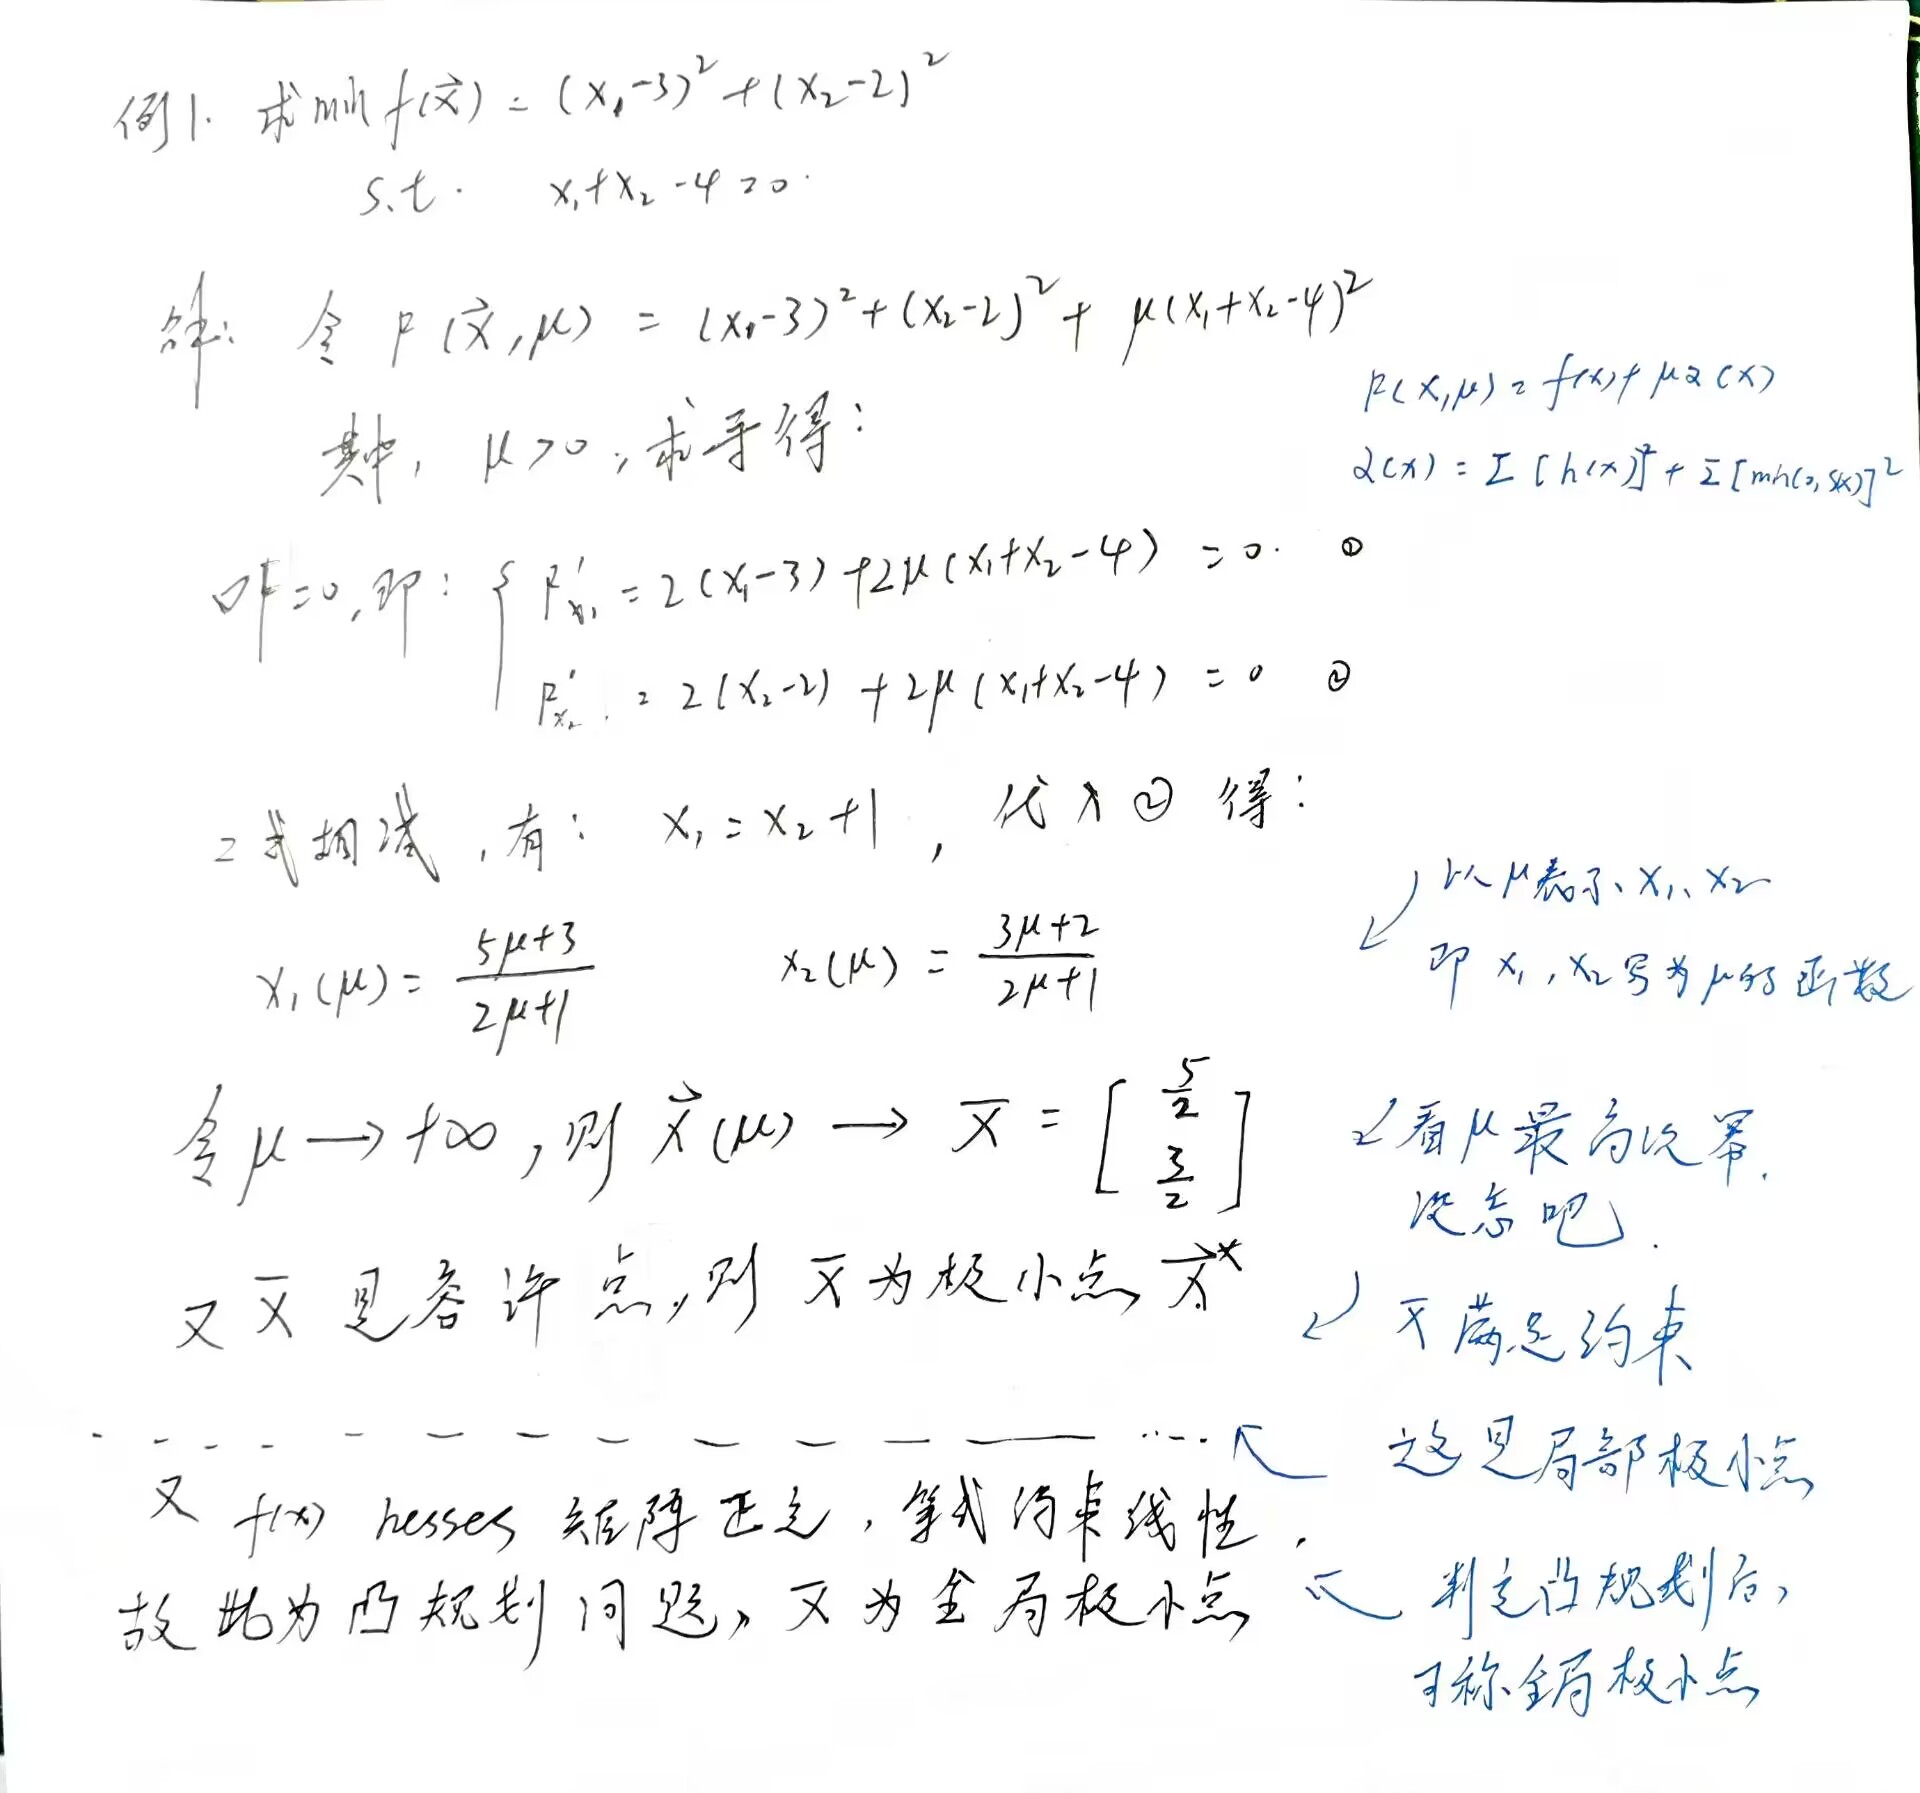 例1. 求min f(x⃗) = (x₁-3)² + (x₂-2)²
s.t. x₁+x₂-4=0.
解: 令 F(x⃗,μ) = (x₁-3)²+(x₂-2)²+ μ(x₁+x₂-4)²
F(x,μ) = f(x)+ μα(x)
其中, μ>0, 求导得:
α(x) = Σ[h(x)]²+Σ[min(0,s(x))]²
∇F=0, 即: { F'x₁ = 2(x₁-3)+2μ(x₁+x₂-4) = 0. ①
F'x₂ = 2(x₂-2) + 2μ(x₁+x₂-4) = 0 ②
二式相减, 有: x₁=x₂+1, 代入②得:
以μ表示x₁、x₂
x₁(μ) = (5μ+3)/(2μ+1) x₂(μ) = (3μ+2)/(2μ+1)
即 x₁, x₂写为μ的函数
令μ → +∞, 则 x⃗(μ) → x̄ = [5/2 3/2]
看μ最高次幂.
没忘吧.
又 x̄ 是容许点, 则 x̄ 为极小点 x⃗*
x̄ 满足约束
这是局部极小点
又 f(x) hesses 矩阵正定, 等式约束线性.
故此为凸规划问题, x̄ 为全局极小点
判定凸规划后,
可称全局极小点